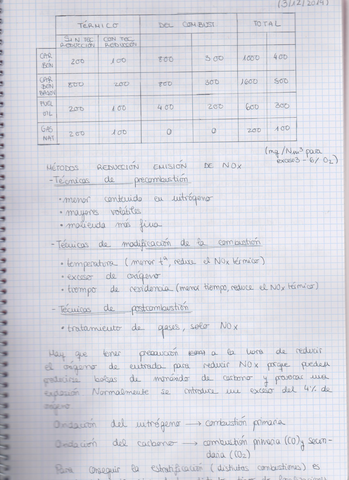 (3/12/2014)
TÉRMICO DEL COMBUST. TOTAL
SIN TEC. REDUCCIÓN CON TEC. REDUCCIÓN
CARBÓN 200 100 800 300 1000 400
CARBÓN 800 200 800 300 1600 500
FUEL OIL 200 100 400 200 600 300
GAS NAT. 200 100 0 0 200 100
(mg/Nm³ para
exceso - 6% O₂)
MÉTODOS REDUCCIÓN EMISIÓN DE NOx
- Técnicas de precombustión
• menor contenido en nitrógeno
• mayores volátiles
• molienda más fina
- Técnicas de modificación de la combustión
• temperatura (menor tª, reduce el NOx térmico)
• exceso de oxígeno
• tiempo de residencia (menor tiempo, reduce el NOx térmico)
- Técnicas de postcombustión
• tratamiento de gases, solo NOx
Hay que tener precaución a la hora de reducir
el oxígeno de entrada para reducir NOx porque pueden
producirse bolsas de monóxido de carbono y provocar una
explosión. Normalmente se introduce un exceso del 4% de
oxígeno
Oxidación del nitrógeno → combustión primaria
Oxidación del carbono → combustión primaria (CO) y secun-
daria (CO₂)
Para conseguir la estratificación (distintas combustiones) es